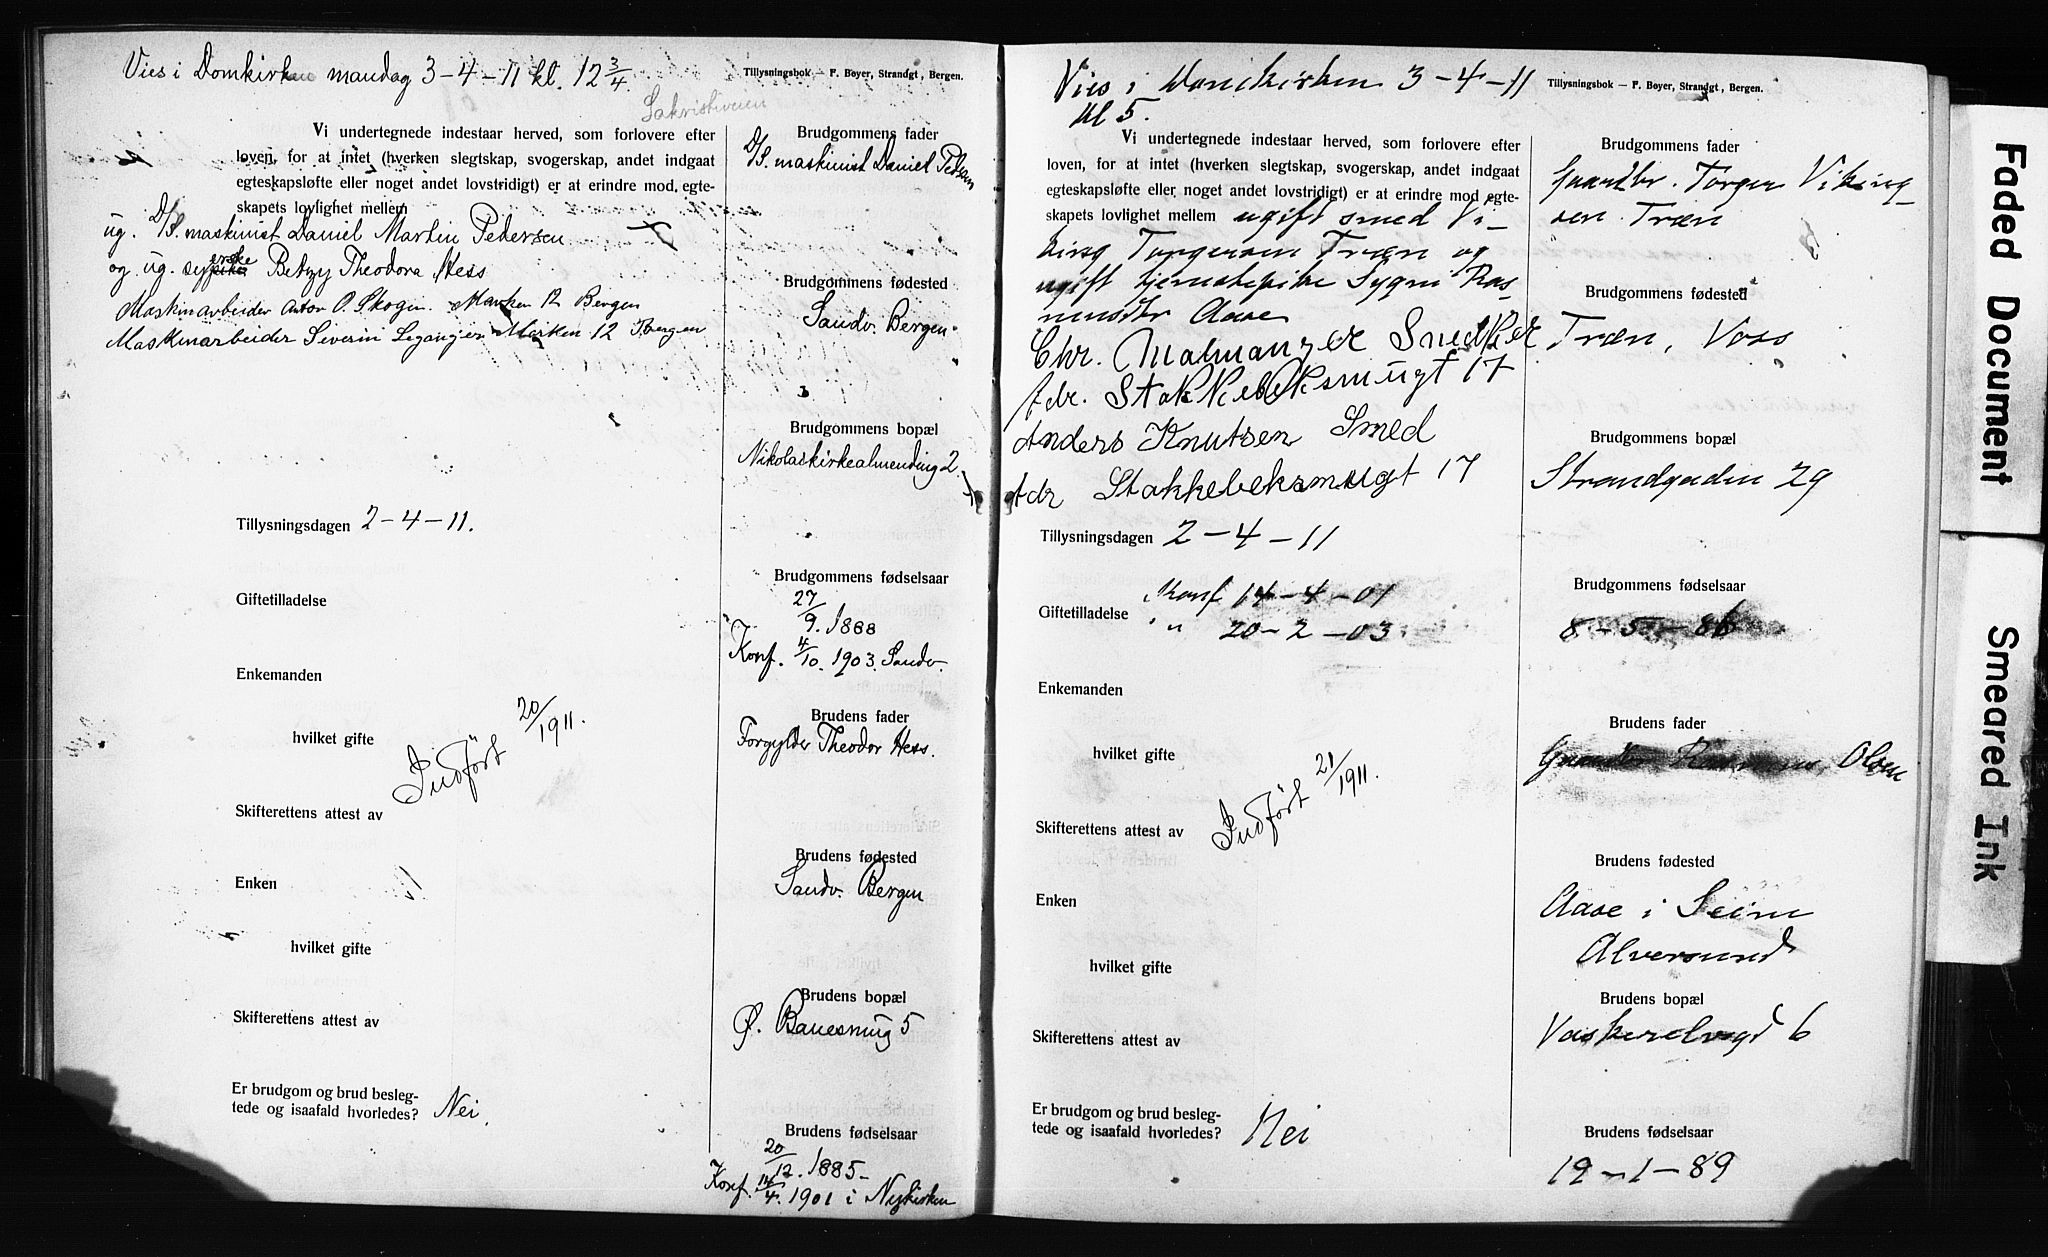 Vies i Domkirken mandag 3-4-11 kl. 12 3/4
Sakristiveien
Tillysningsbok — F. Boyer, Strandgt., Bergen.
Vi undertegnede indestaar herved, som forlovere efter
loven, for at intet (hverken slegtskap, svogerskap, andet indgaat
egteskapsløfte eller noget andet lovstridigt) er at erindre mod, egte-
skapets lovlighet mellem
ug. D/S. maskinist Daniel Martin Pedersen
og ug. syerske Betzy Theodora Hess
Maskinarbeider Anton O. Skogen. Marken 12 Bergen
Maskinarbeider Severin Leganger Marken 12 Bergen
Tillysningsdagen 2-4-11.
Giftetilladelse
Enkemanden
hvilket gifte
Indført 20/1911.
Skifterettens attest av
Enken
hvilket gifte
Skifterettens attest av
Er brudgom og brud besleg-
tede og isaafald hvorledes? Nei.
Brudgommens fader
D/S. maskinist Daniel Pedersen
Brudgommens fødested
Sandv. Bergen.
Brudgommens bopæl
Nikolaikirkealmending 2.
Brudgommens fødselsaar
27/9. 1888
Konf. 4/10. 1903. Sandv.
Brudens fader
Forgylder Theodor Hess.
Brudens fødested
Sandv. Bergen
Brudens bopæl
Ø. Banesmug 5
Brudens fødselsaar
20/12. 1885-
Konf. 14/4. 1901 i Nykirken
Vies i Domkirken 3-4-11
kl 5.
Tillysningsbok — F. Boyer, Strandgt., Bergen.
Vi undertegnede indestaar herved, som forlovere efter
loven, for at intet (hverken slegtskap, svogerskap, andet indgaat
egteskapsløfte eller noget andet lovstridigt) er at erindre mod egte-
skapets lovlighet mellem ugift smed Vi-
king Torgersen Træn og
ugift tjenestepike Sygni Ras-
musdtr Aase
Chr. Malmanger Snedker
Adr. Stakkebeksmugt 17
Anders Knutsen Smed
Adr Stakkebeksmugt 17
Tillysningsdagen 2-4-11
Giftetilladelse Konf 14-4-01
" 20-2-03
Enkemanden
hvilket gifte
Indført 21/1911.
Skifterettens attest av
Enken
hvilket gifte
Skifterettens attest av
Er brudgom og brud besleg-
tede og isaafald hvorledes? Nei
Brudgommens fader
Gaardbr. Torger Viking-
sen Træn
Brudgommens fødested
Træn, Voss
Brudgommens bopæl
Strandgaden 29
Brudgommens fødselsaar
8-5-86
Brudens fader
Gaardbr Rasmus Olsen
Brudens fødested
Aase i Seim
Alversund
Brudens bopæl
Vaskerelvgd 6
Brudens fødselsaar
19-1-89
Faded Document
Smeared Ink